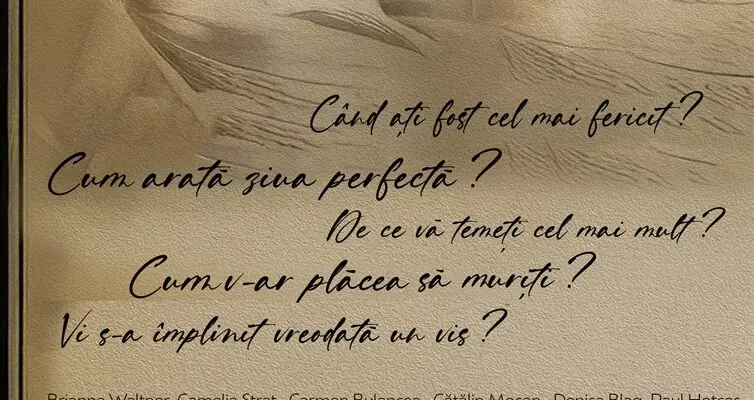 Când ați fost cel mai fericit?
Cum arată ziua perfectă?
De ce vă temeți cel mai mult?
Cum v-ar plăcea să muriți?
Vi s-a împlinit vreodată un vis?
Brianna Waltner, Camelia Strat, Carmen Bulancea, Cătălin Mocan, Denisa Blag, Paul Hotcaș